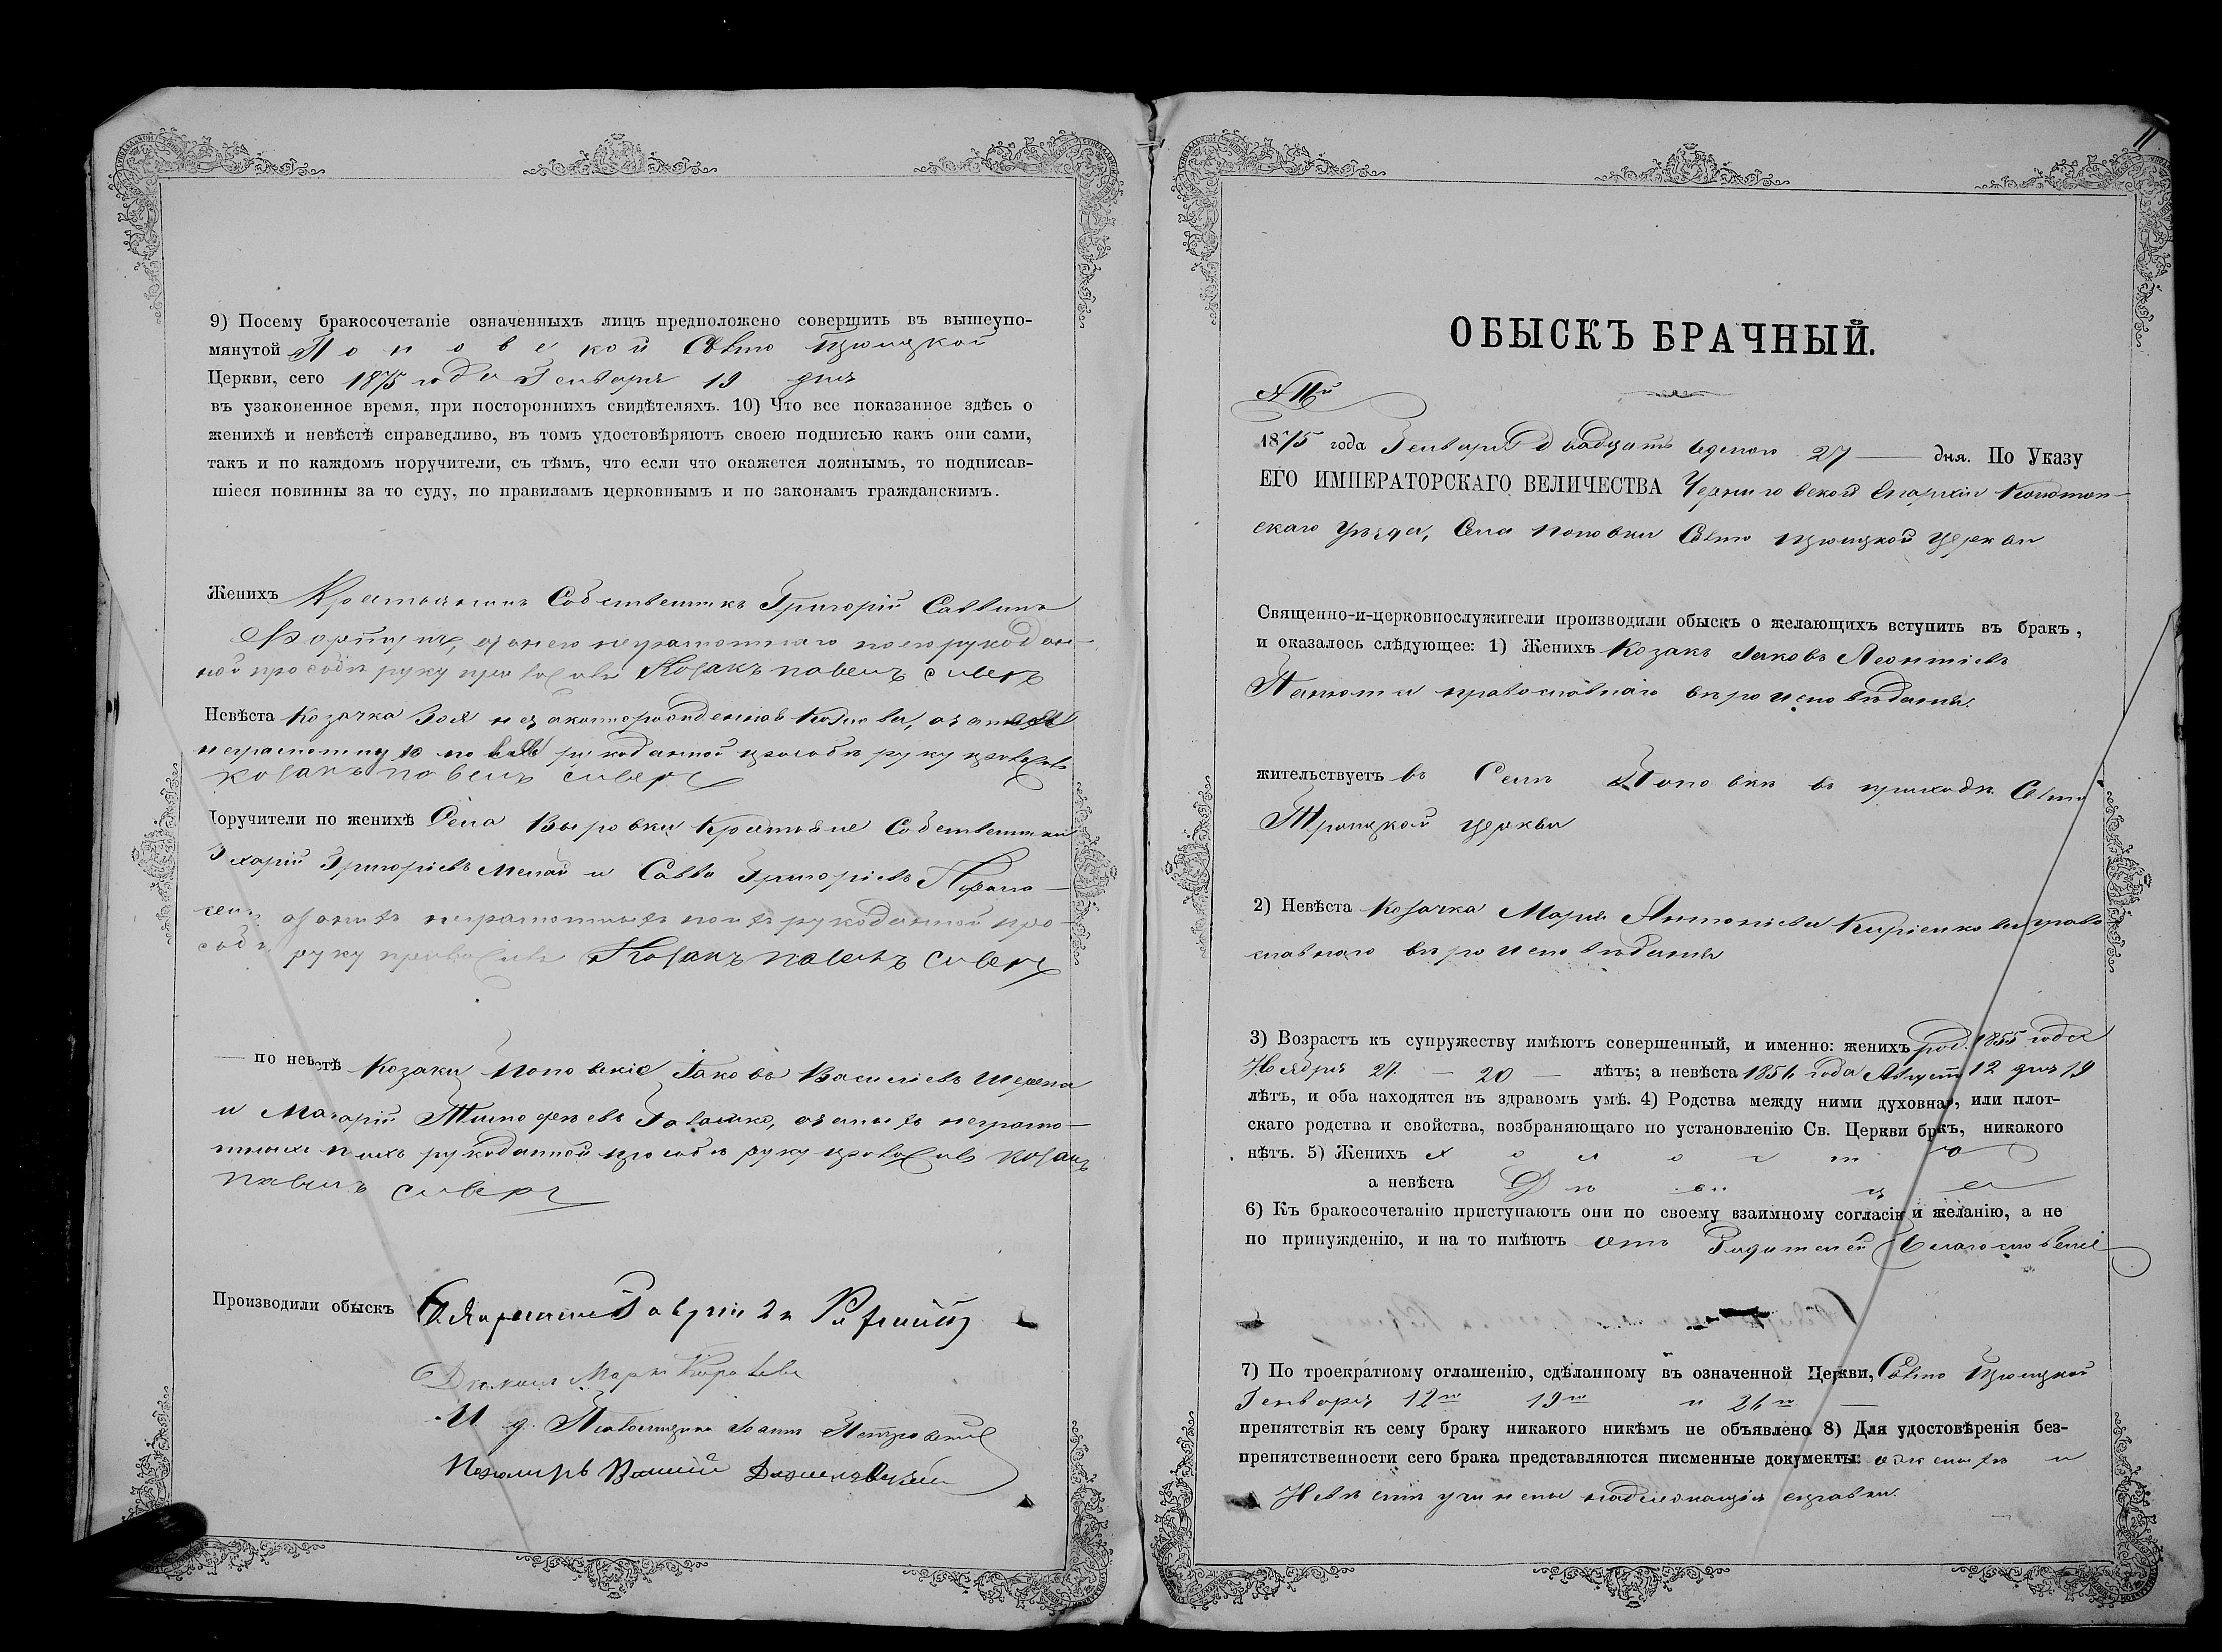 9) Посему бракосочетаніе означенныхъ лицъ предположено совершить въ вышеупо-
мянутой Поповской Свято Троицкой
Церкви, сего 1875 года Генваря 19 дня
въ узаконенное время, при постороннихъ свидѣтеляхъ. 10) Что все показанное здѣсь о
женихѣ и невѣстѣ справедливо, въ томъ удостовѣряютъ своею подписью какъ они сами,
такъ и по каждомъ поручители, съ тѣмъ, что если что окажется ложнымъ, то подписав-
шіеся повинны за то суду, по правиламъ церковнымъ и по законамъ гражданскимъ.
Женихъ Крестьянинъ Собственникъ Григорій Саввинъ
за него неграмотнаго по его рукодан-
ной прозьбѣ руку приложилъ Козакъ павелъ сиверъ
Невѣста Козачка Зоя незаконнорожденная
неграмотную по рукоданной прозьбѣ руку приложилъ
козакъ павелъ сиверъ
Поручители по женихѣ Села Выровки Крестьяне Собственники
Захарій Григоріевъ и Савва Григоріевъ
за нихъ неграмотныхъ по ихъ рукоданной про-
зьбѣ руку приложилъ Козакъ павелъ сиверъ
— по невѣстѣ Козаки Поповскіе Іаковъ Василіевъ
и Макарій Тимофеевъ за нихъ неграмо-
тныхъ по ихъ рукоданной прозьбѣ руку приложилъ козакъ
павелъ сиверъ
Производили обыскъ
Діаконъ Маркъ
И. д. Псаломщика Іоаннъ Петровскій
Пономарь
11
ОБЫСКЪ БРАЧНЫЙ.
№ 11й
1875 года Генваря двадцать седмого 27 — дня. По Указу
ЕГО ИМПЕРАТОРСКАГО ВЕЛИЧЕСТВА Черниговской Епархіи Конотоп-
скаго Уѣзда, Села Поповки Свято Троицкой Церкви
Священно-и-церковнослужители производили обыскъ о желающихъ вступить въ бракъ,
и оказалось слѣдующее: 1) Женихъ Козакъ Іаковъ Леонтіевъ
православнаго вѣроисповѣданія.
жительствуетъ въ Селѣ Поповкѣ въ приходѣ Свято
Троицкой церкви
2) Невѣста Козачка Марія Антоніева Киріенкова право
славнаго вѣроисповѣданія
3) Возрастъ къ супружеству имѣютъ совершенный, и именно: женихъ род. 1855 года
Ноября 27. — 20 — лѣтъ; а невѣста 1856 года Августа 12 дня 19
лѣтъ, и оба находятся въ здравомъ умѣ. 4) Родства между ними духовнаго, или плот-
скаго родства и свойства, возбраняющаго по установленію Св. Церкви бракъ, никакого
нѣтъ. 5) Женихъ холостъ
а невѣста Дѣвица
6) Къ бракосочетанію приступаютъ они по своему взаимному согласію и желанію, а не
по принужденію, и на то имѣютъ отъ Родителей Благословеніе
7) По троекратному оглашенію, сдѣланному въ означенной Церкви, Свято Троицкой
Генваря 12го 19го и 26го —
препятствія къ сему браку никакого никѣмъ не объявлено 8) Для удостовѣренія без-
препятственности сего брака представляются писменные документы: о женихѣ и
Невѣстѣ учинены надлежащія справки.